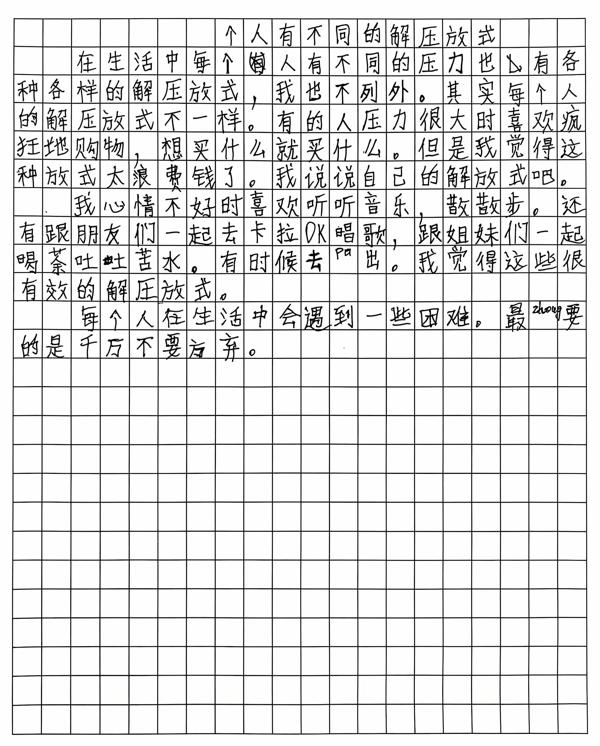 个人有不同的解压放式
在生活中每个人有不同的压力也有各
种各样的解压放式，我也不列外。其实每个人
的解压放式不一样。有的人压力很大时喜欢疯
狂地购物，想买什么就买什么。但是我觉得这
种放式太浪费钱了。我说说自己的解放式吧。
我心情不好时喜欢听听音乐，散散步。还
有跟朋友们一起去卡拉OK唱歌，跟姐妹们一起
喝茶吐吐苦水。有时候去pa出。我觉得这些很
有效的解压放式。
每个人在生活中会遇到一些困难。最zhong要
的是千万不要方弃。